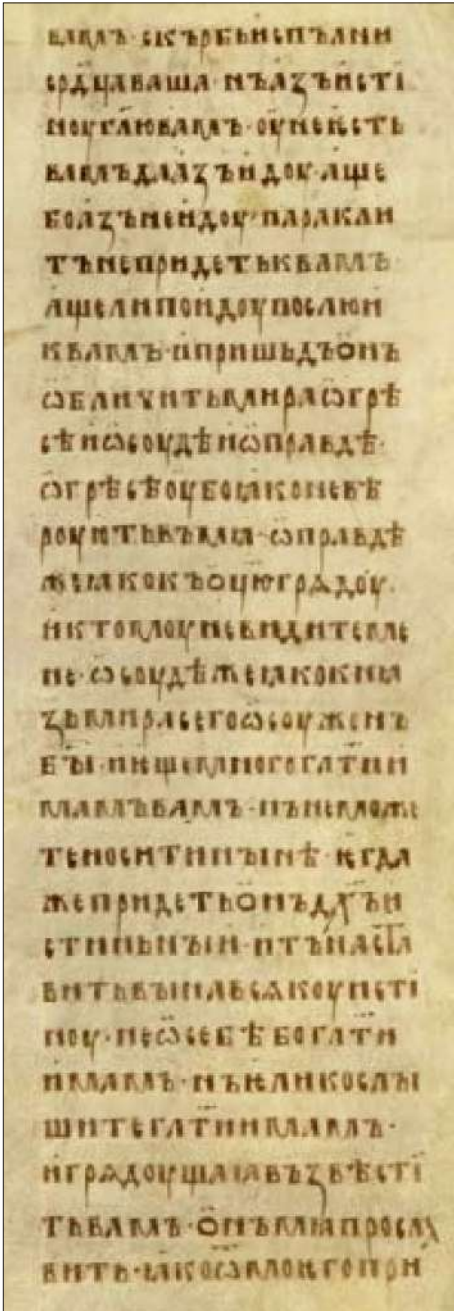 вамъ· скърбь испълни
срдца ваша· нъ азъ исті
ноу глю вамъ· оунѥ ѥсть
вамъ да азъ идоу· аще
бо азъ не идоу· паракли
тъ не придеть къ вамъ·
аще ли поидоу послю и
къ вамъ· и пришьдъ онъ
ѡбличить мира ѡ грѣ
сѣ и ѡ соудѣ и ѡ правдѣ·
ѡ грѣсѣ оубо ꙗко не вѣ
роують въ мѧ· ѡ правдѣ
же ꙗко къ оцю грѧдоу·
и к томоу не видите ме
не· ѡ соудѣ же ꙗко кнѧ
зь мира сего ѡсоуженъ
бы· и ѥще много глти и
мамъ вамъ· нъ не може
те носити нынѣ· ѥгда
же придеть онъ дхъ и
стиньныи· и тъ наста
вить вы на всѧкоу исті
ноу· не ѡ себѣ бо глти
имамь· нъ ѥлико слы
шите глти имамь·
и грѧдоущаꙗ възвѣсті
ть вамъ· онъ мѧ просла
вить· ꙗко ѿ моѥго при